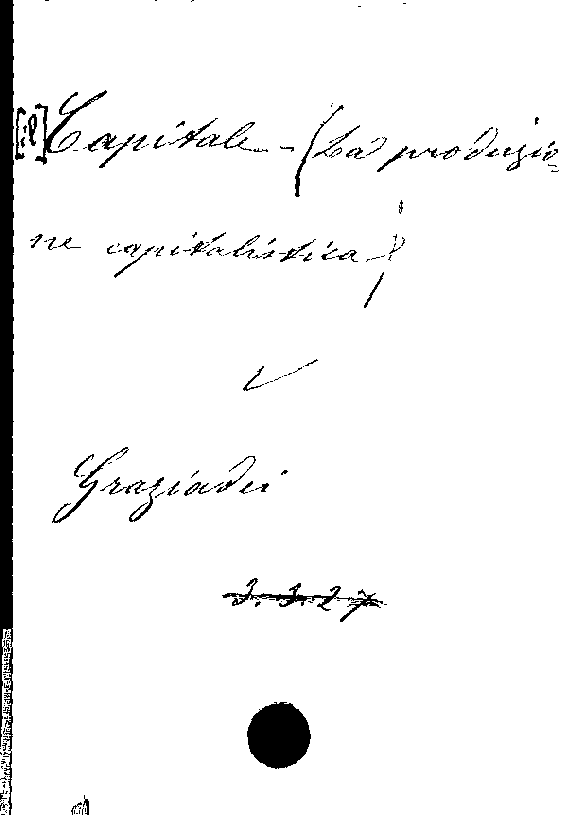 [il] Capitale - (La produzio=
ne capitalistica)
Graziadei
3.3.27